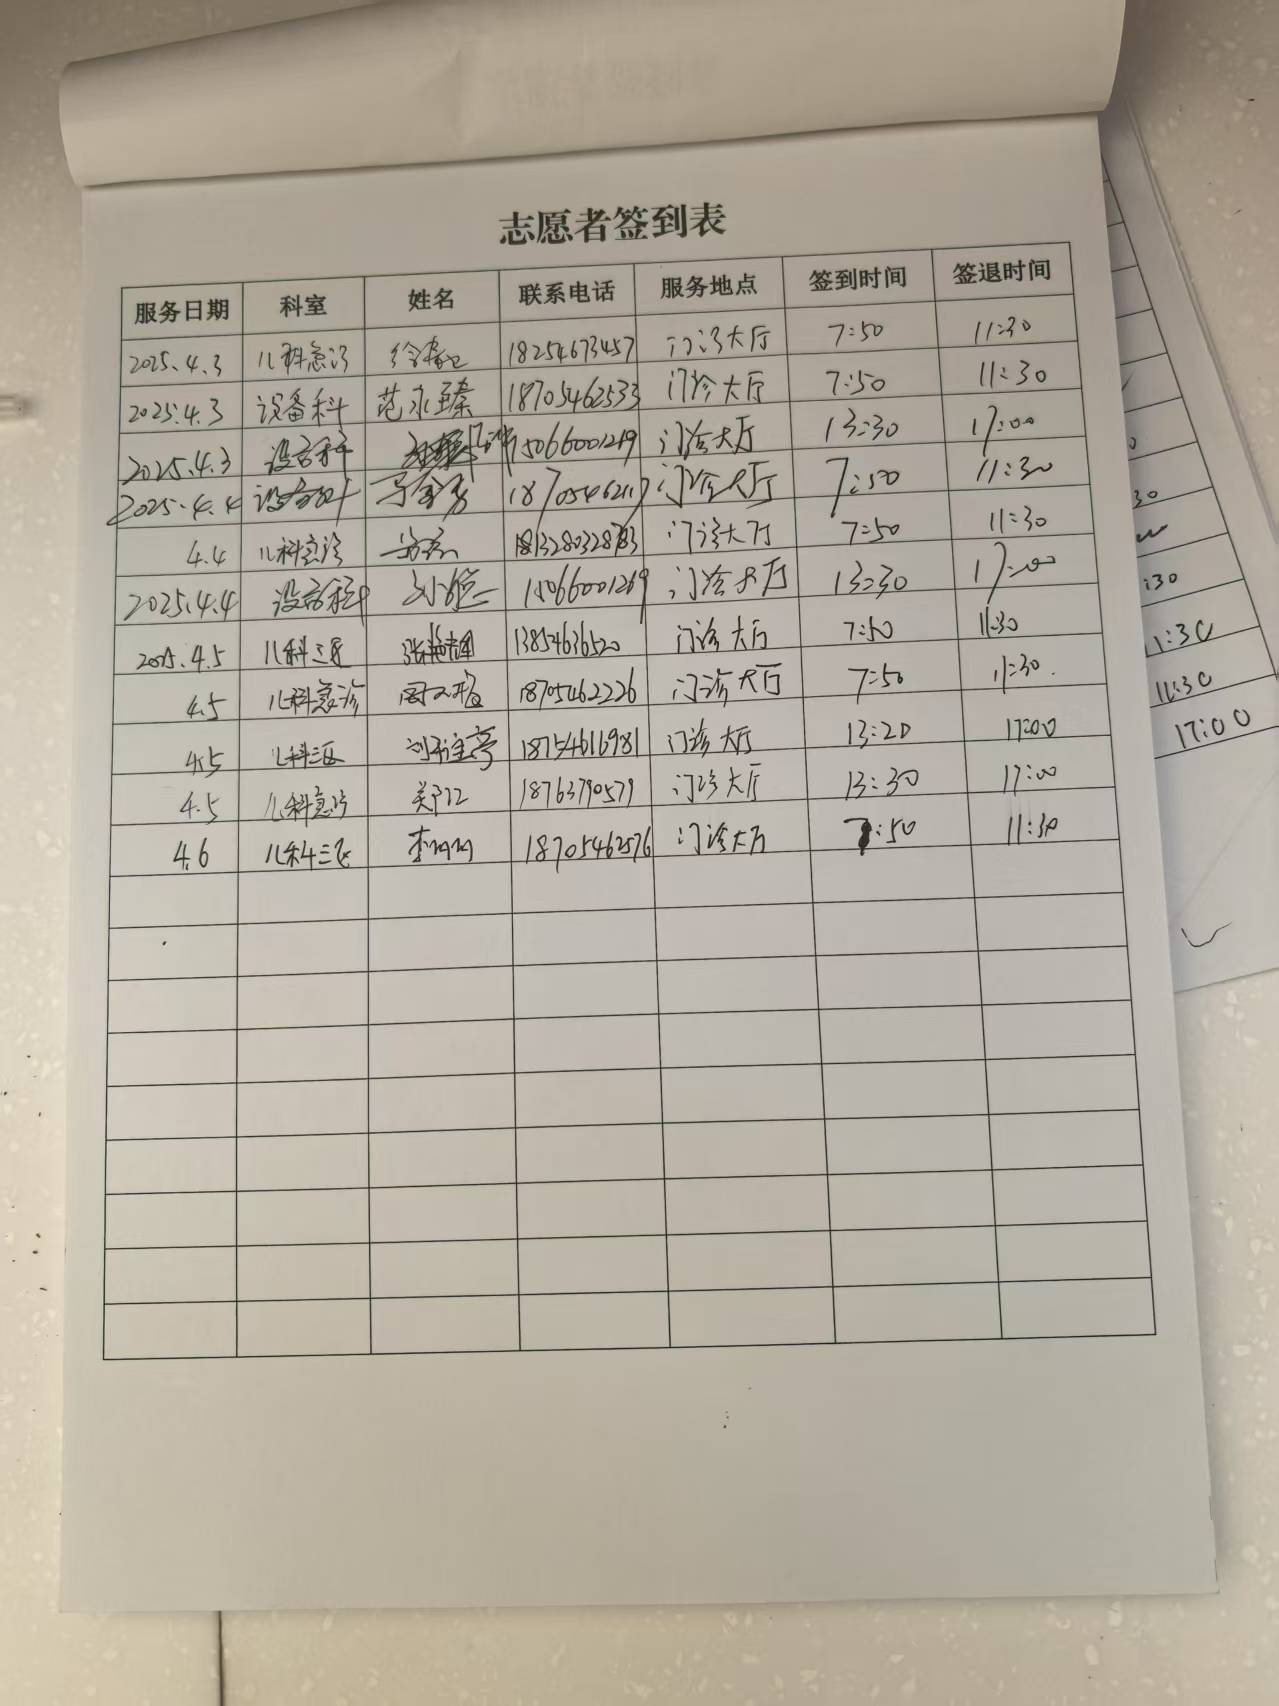 志愿者签到表
服务日期 科室 姓名 联系电话 服务地点 签到时间 签退时间
2025.4.3 儿科急诊 18254673457 门诊大厅 7:50 11:30
2025.4.3 设备科 范永臻 18705462533 门诊大厅 7:50 11:30
2025.4.3 设备科 15066001269 门诊大厅 13:30 17:00
2025.4.4 设备科 门诊大厅 7:50 11:30
4.4 儿科急诊 门诊大厅 7:50 11:30
2025.4.4 设备科 15066001269 门诊大厅 13:30 17:00
2025.4.5 儿科三区 张艳辉 13854636520 门诊大厅 7:50 11:30
4.5 儿科急诊 18705462226 门诊大厅 7:50 11:30
4.5 儿科三区 18754616981 门诊大厅 13:20 17:00
4.5 儿科急诊 18763790579 门诊大厅 13:30 17:00
4.6 儿科三区 18705462576 门诊大厅 7:50 11:30
30
:30
11:30
11:30
17:00